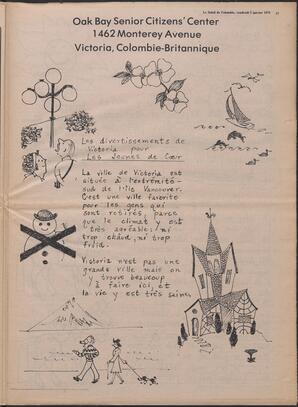 Le Soleil de Colombie, vendredi 5 janvier 1979
Oak Bay Senior Citizens' Center
1462 Monterey Avenue
Victoria, Colombie-Britannique
Les divertissements de
Victoria pour
Les Jeunes de Cœur
La ville de Victoria est
située à l'extrémité
sud de l'Ile Vancouver.
C'est une ville favorite
pour les gens qui
sont retirés, parce
que le climat y est
très agréable; ni
trop chaud, ni trop
froid.
Victoria n'est pas une
grande ville mais on
y trouve beaucoup
à faire ici, et
la vie y est très saine.